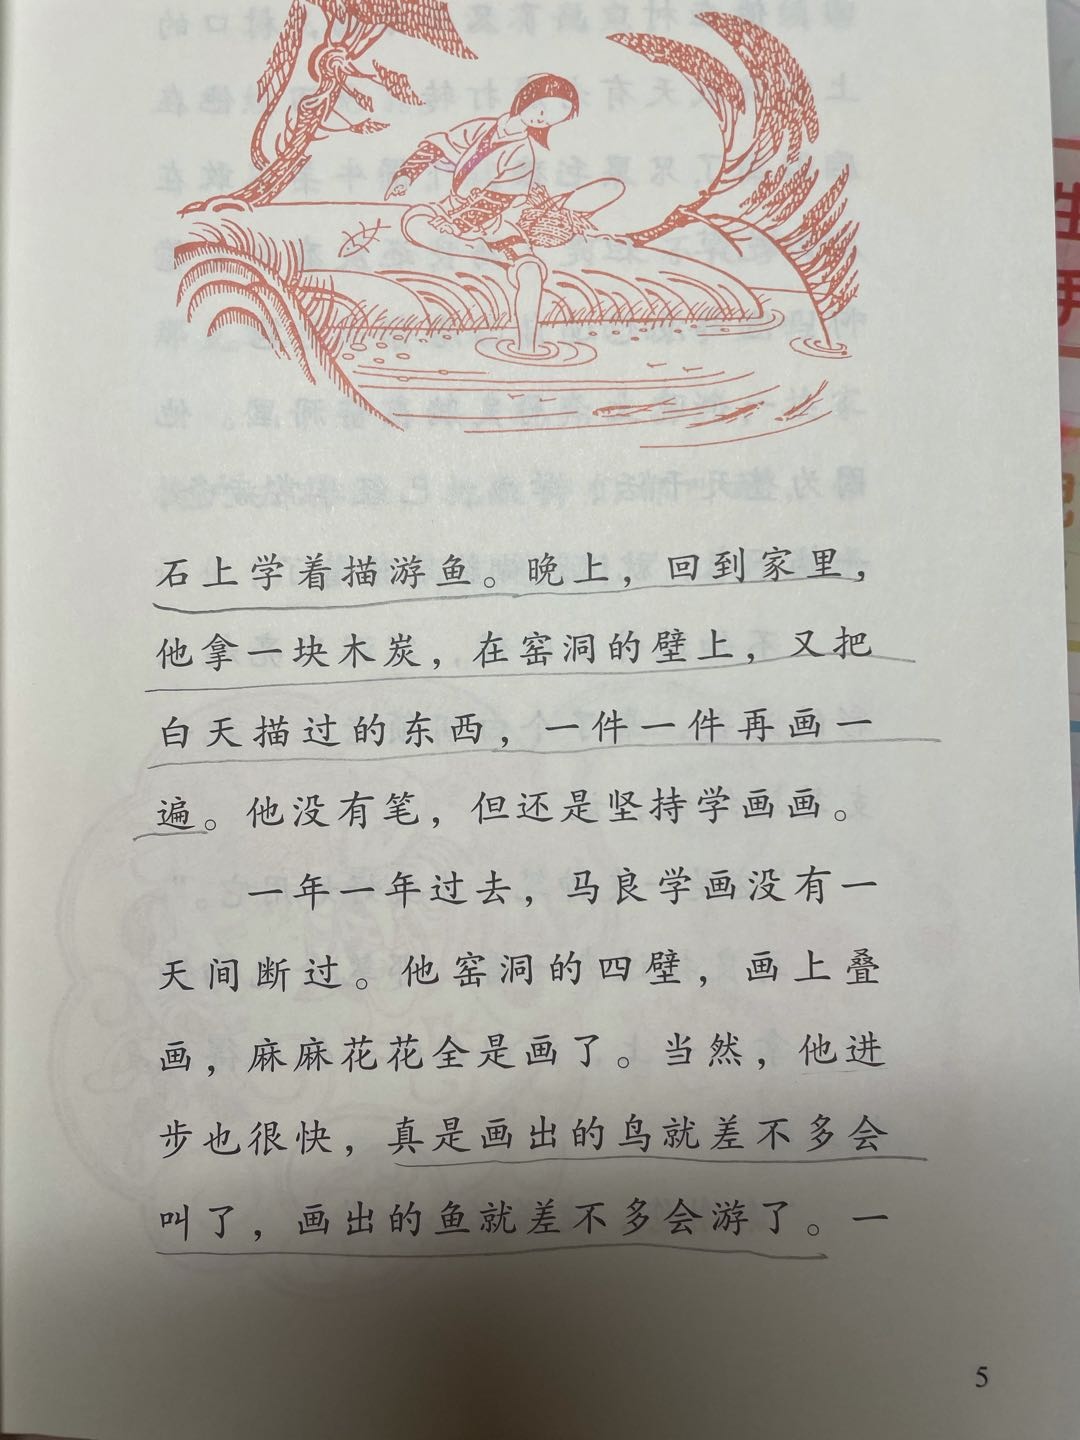 石上学着描游鱼。晚上，回到家里，
他拿一块木炭，在窑洞的壁上，又把
白天描过的东西，一件一件再画一
遍。他没有笔，但还是坚持学画画。
一年一年过去，马良学画没有一
天间断过。他窑洞的四壁，画上叠
画，麻麻花花全是画了。当然，他进
步也很快，真是画出的鸟就差不多会
叫了，画出的鱼就差不多会游了。一
5